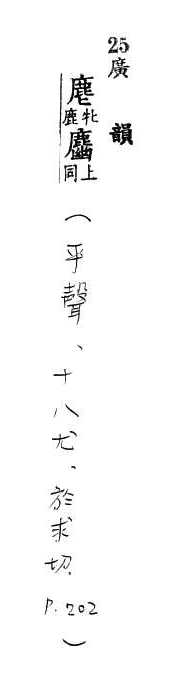 25廣韻
麀牝鹿上同(平聲、十八尤、於求切, P. 202)